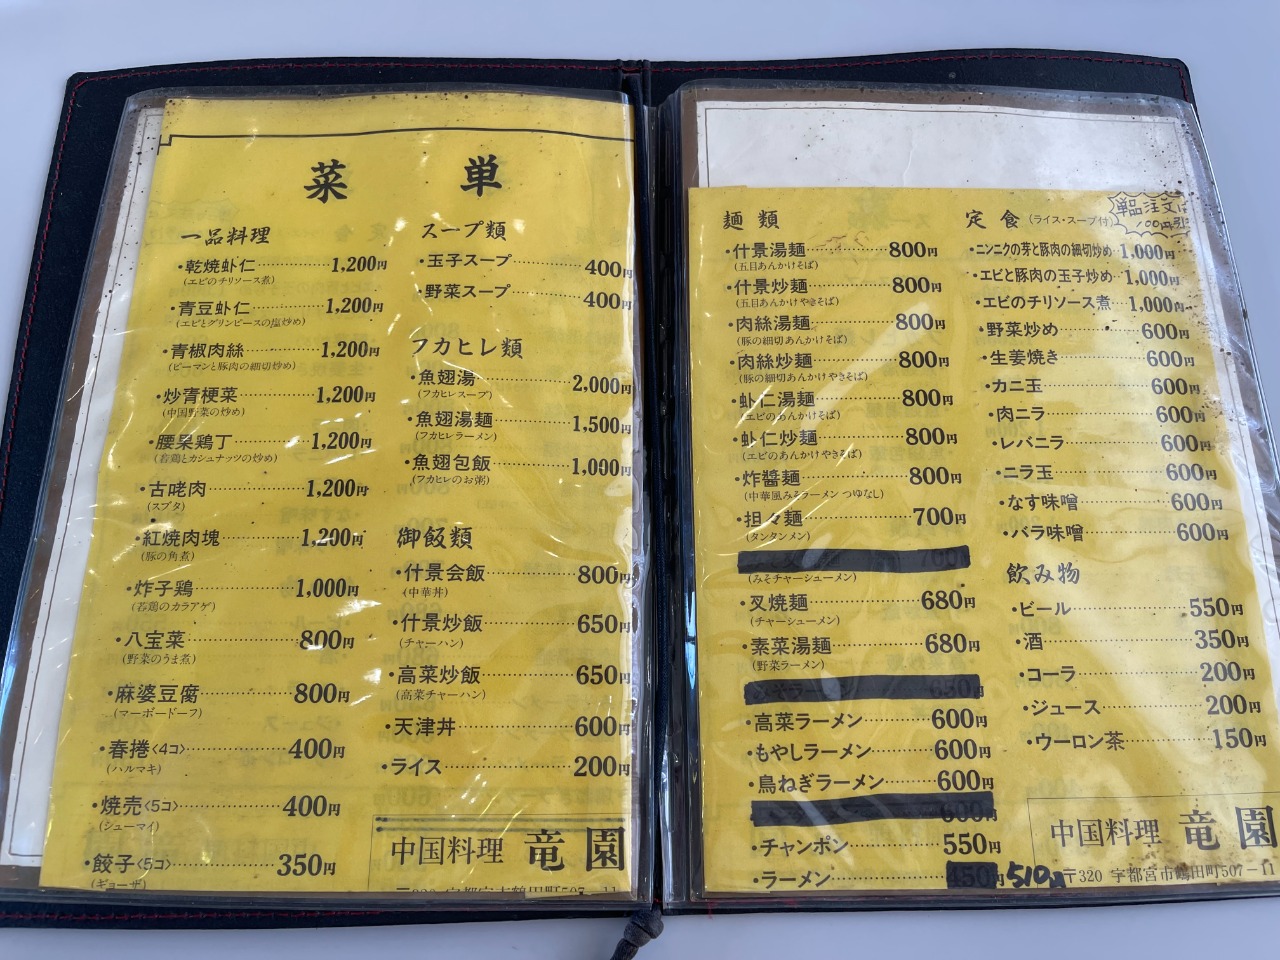 菜 単
一品料理
・乾焼虾仁 1,200円
(エビのチリソース煮)
・青豆虾仁 1,200円
(エビとグリンピースの塩炒め)
・青椒肉絲 1,200円
(ピーマンと豚肉の細切炒め)
・炒青梗菜 1,200円
(中国野菜の炒め)
・腰果鶏丁 1,200円
(若鶏とカシュナッツの炒め)
・古咾肉 1,200円
(スブタ)
・紅焼肉塊 1,200円
(豚の角煮)
・炸子鶏 1,000円
(若鶏のカラアゲ)
・八宝菜 800円
(野菜のうま煮)
・麻婆豆腐 800円
(マーボードーフ)
・春捲〈4コ〉 400円
(ハルマキ)
・焼売〈5コ〉 400円
(シューマイ)
・餃子〈5コ〉 350円
(ギョーザ)
スープ類
・玉子スープ 400円
・野菜スープ 400円
フカヒレ類
・魚翅湯 2,000円
(フカヒレスープ)
・魚翅湯麺 1,500円
(フカヒレラーメン)
・魚翅包飯 1,000円
(フカヒレのお粥)
御飯類
・什景会飯 800円
(中華丼)
・什景炒飯 650円
(チャーハン)
・高菜炒飯 650円
(高菜チャーハン)
・天津丼 600円
・ライス 200円
中国料理 竜園
〒320 宇都宮市鶴田町507-11
麺類
・什景湯麺 800円
(五目あんかけそば)
・什景炒麺 800円
(五目あんかけやきそば)
・肉絲湯麺 800円
(豚の細切あんかけそば)
・肉絲炒麺 800円
(豚の細切あんかけやきそば)
・虾仁湯麺 800円
(エビのあんかけそば)
・虾仁炒麺 800円
(エビのあんかけやきそば)
・炸醬麺 800円
(中華風みそラーメン つゆなし)
・担々麺 700円
(タンタンメン)
(みそチャーシューメン)
・叉焼麺 680円
(チャーシューメン)
・素菜湯麺 680円
(野菜ラーメン)
・高菜ラーメン 600円
・もやしラーメン 600円
・鳥ねぎラーメン 600円
600円
・チャンポン 550円
・ラーメン 450円 510円
定食 (ライス・スープ付)
単品注文は
100円引
・ニンニクの芽と豚肉の細切炒め 1,000円
・エビと豚肉の玉子炒め 1,000円
・エビのチリソース煮 1,000円
・野菜炒め 600円
・生姜焼き 600円
・カニ玉 600円
・肉ニラ 600円
・レバニラ 600円
・ニラ玉 600円
・なす味噌 600円
・バラ味噌 600円
飲み物
・ビール 550円
・酒 350円
・コーラ 200円
・ジュース 200円
・ウーロン茶 150円
中国料理 竜園
〒320 宇都宮市鶴田町507-11